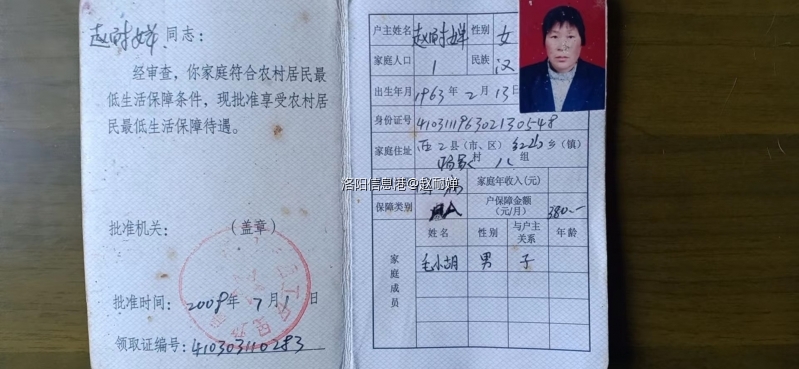 赵耐婵 同志：
经审查，你家庭符合农村居民最
低生活保障条件，现批准享受农村居
民最低生活保障待遇。
批准机关： （盖章）
批准时间： 2008年 7月1日
领取证编号：410303110283
户主姓名 赵耐婵 性别 女
家庭人口 1 民族 汉
出生年月 1963年 2月13日
身份证号 410311196302130548
家庭住址 县（市、区） 红山 乡（镇）
村 八 组
家庭年收入(元)
保障类别 户保障金额(元/月) 380.—
家庭成员
姓名 性别 与户主关系 年龄
毛小胡 男 子
洛阳信息港@赵耐婵